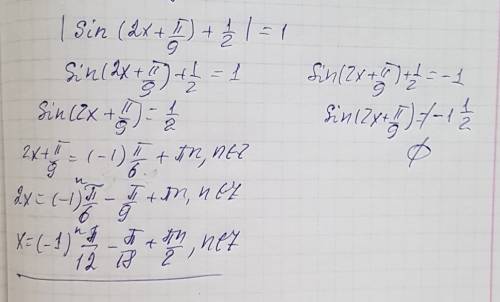 |Sin (2x + π/9) + 1/2| = 1
Sin(2x + π/9) + 1/2 = 1
Sin(2x + π/9) = 1/2
2x + π/9 = (-1) π/6 + πn, n∈Z
2x = (-1)^n π/6 - π/9 + πn, n∈Z
x = (-1)^n π/12 - π/18 + πn/2, n∈Z
Sin(2x + π/9) + 1/2 = -1
Sin(2x + π/9) ≠ -1 1/2
∅